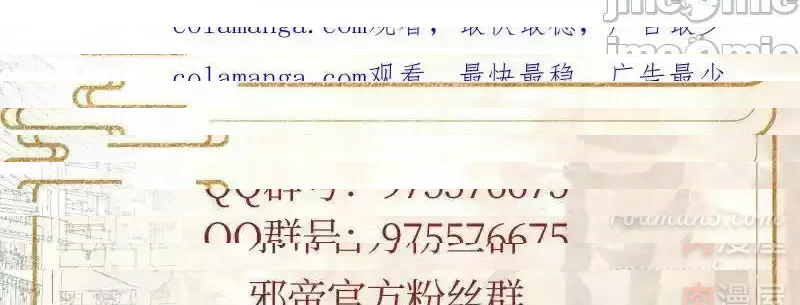 colamanga.com观看，最快最稳，广告最少
colamanga.com观看，最快最稳，广告最少
QQ群号：975576675
QQ群号：975576675
邪帝官方粉丝群